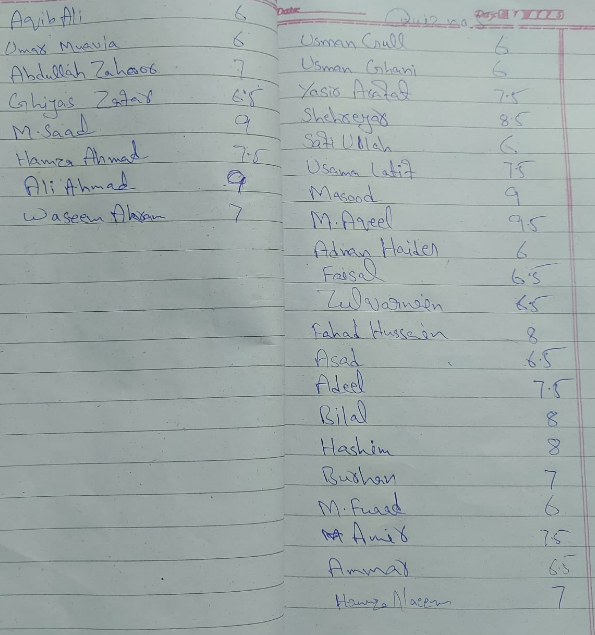 Aqib Ali 6
Umar Muavia 6
Abdullah Zahoor 7
Ghiyas Zafar 6.5
M. Saad 9
Hamza Ahmad 7.5
Ali Ahmad 9
Waseem Akram 7
Date:
Quiz no.
Usman Gull 6
Usman Ghani 6
Yasir Arafat 7.5
Shehreyar 8.5
Safi Ullah 6
Usama Latif 7.5
Masood 9
M. Aqeel 9.5
Adnan Haider 6
Faisal 6.5
Zulqarnain 6.5
Fahad Hussain 8
Asad 6.5
Adeel 7.5
Bilal 8
Hashim 8
Burhan 7
M. Fuaad 6
Amir 7.5
Ammar 6.5
Hamza Naeem 7